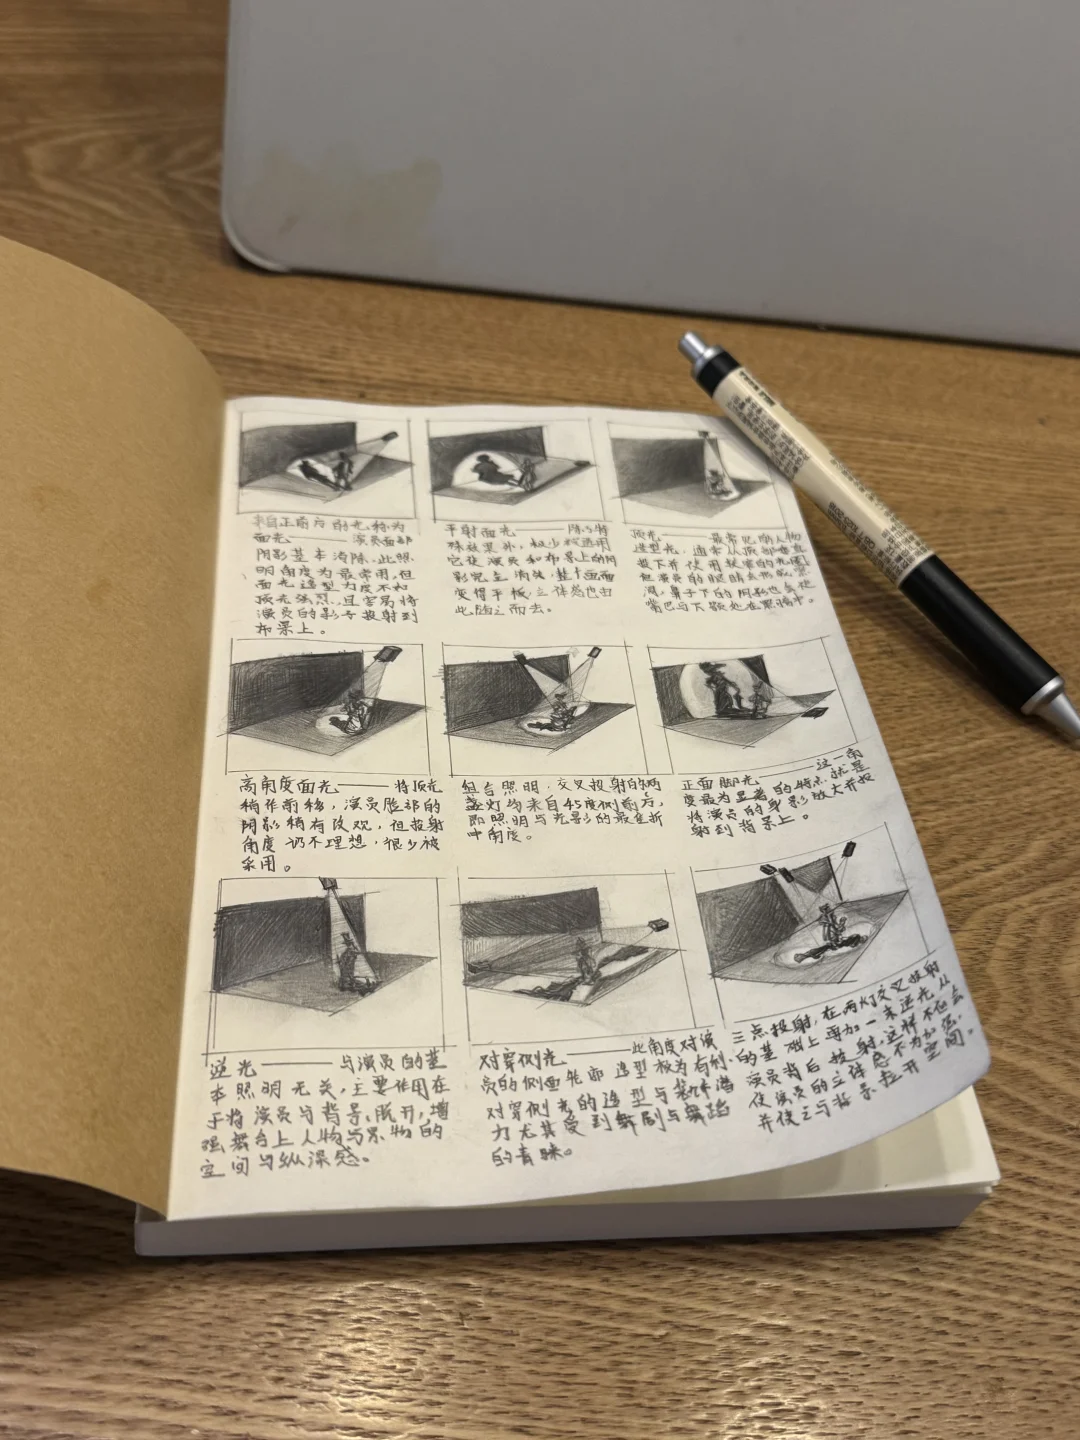 来自正前方的光,称为
面光——演员面部
阴影基本消除.此照
明角度为最常用,但
面光造型力度不如
顶光强烈,且容易将
演员的影子投射到
布景上。
平射面光——除了特
殊效果外,极少被选用
它使演员和布景上的阴
影完全消失,整个画面
变得平板,立体感也由
此随之而去。
顶光——最常见的人物
造型光,通常从顶部垂直
投下并使用较窄的光圈
但演员的眼睛会形成深
渊,鼻子下的阴影也会使
嘴巴与下颚处在黑暗中.
高角度面光——将顶光
稍作前移,演员脸部的
阴影稍有改观,但投射
角度仍不理想,很少被
采用。
组合照明,交叉投射的两
盏灯均来自45度侧前方,
即照明与光影的最佳折
中角度。
正面脚光——这一角
度最为显著的特点就是
将演员的身影放大并投
射到背景上。
逆光——与演员的基
本照明无关,主要作用在
于将演员与背景展开,增
强舞台上人物与景物的
空间与纵深感。
对穿侧光——此角度对演
员的侧面轮廓造型极为有利.
对穿侧光的造型与潜
力尤其受到舞剧与舞蹈
的青睐。
三点投射,在两灯交叉投射
的基础上再加一束逆光从
演员背后投射,这样不但会
使演员的立体感不为加强.
并使之与背景拉开空间.